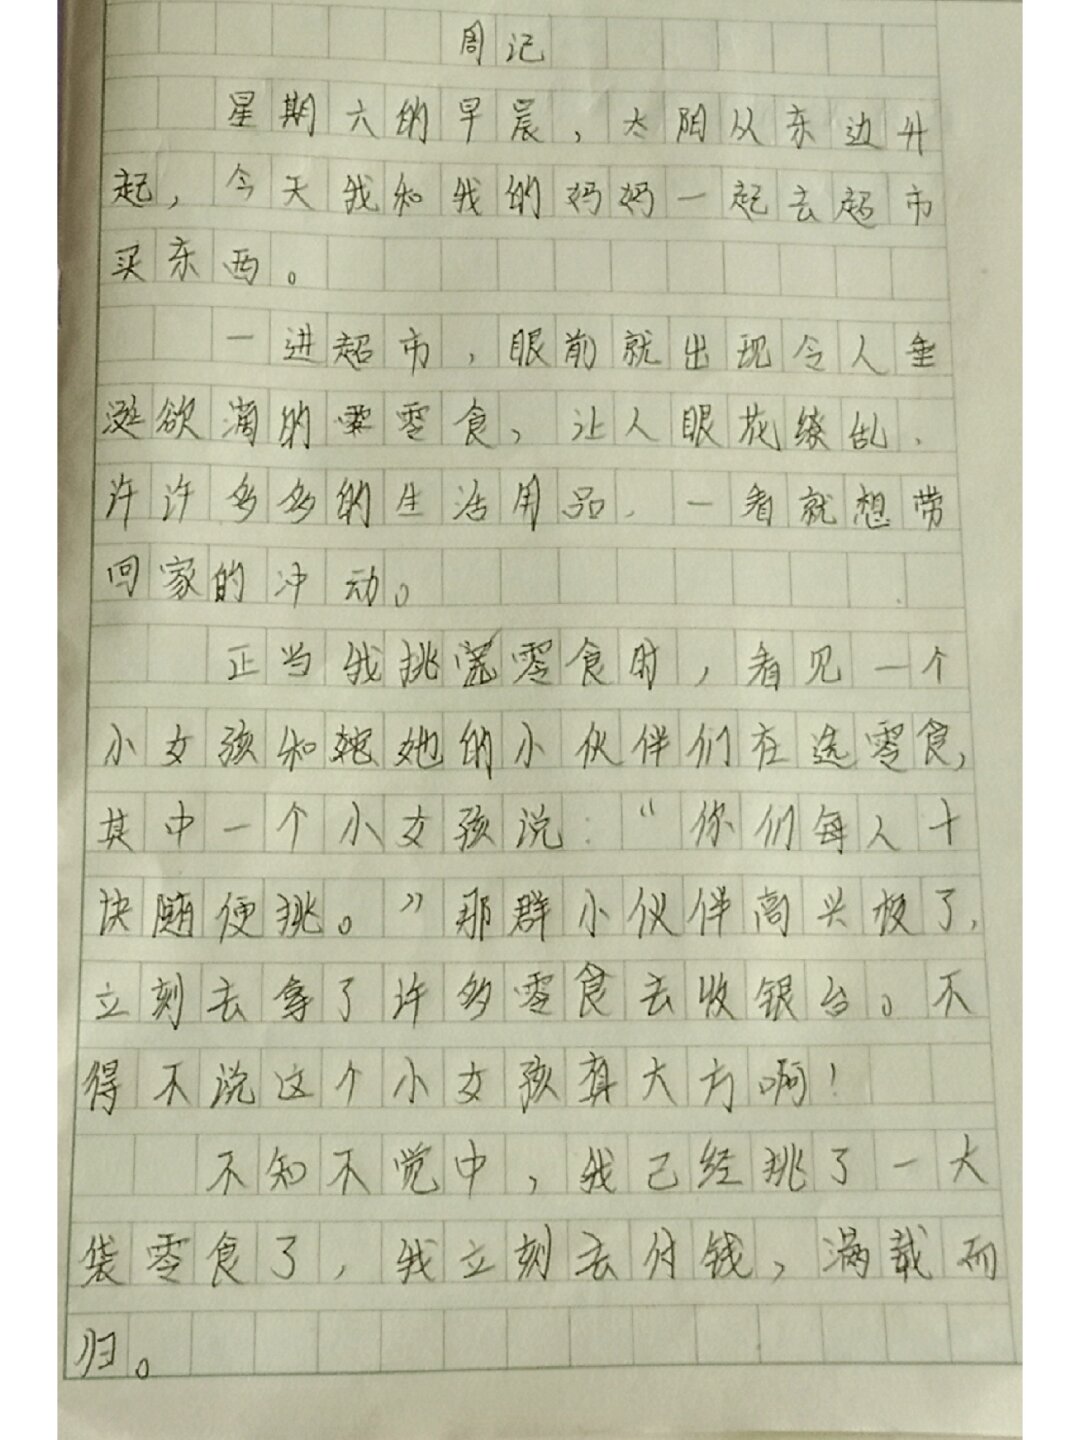 周记
星期六的早晨，太阳从东边升
起，今天我和我的妈妈一起去超市
买东西。
一进超市，眼前就出现令人垂
涎欲滴的零食，让人眼花缭乱．
许许多多的生活用品．一看就想带
回家的冲动。
正当我挑零食时，看见一个
小女孩和她的小伙伴们在选零食，
其中一个小女孩说：“你们每人十
块随便挑。”那群小伙伴高兴极了，
立刻去拿了许多零食去收银台。不
得不说这个小女孩真大方啊！
不知不觉中，我已经挑了一大
袋零食了，我立刻去付钱，满载而
归。